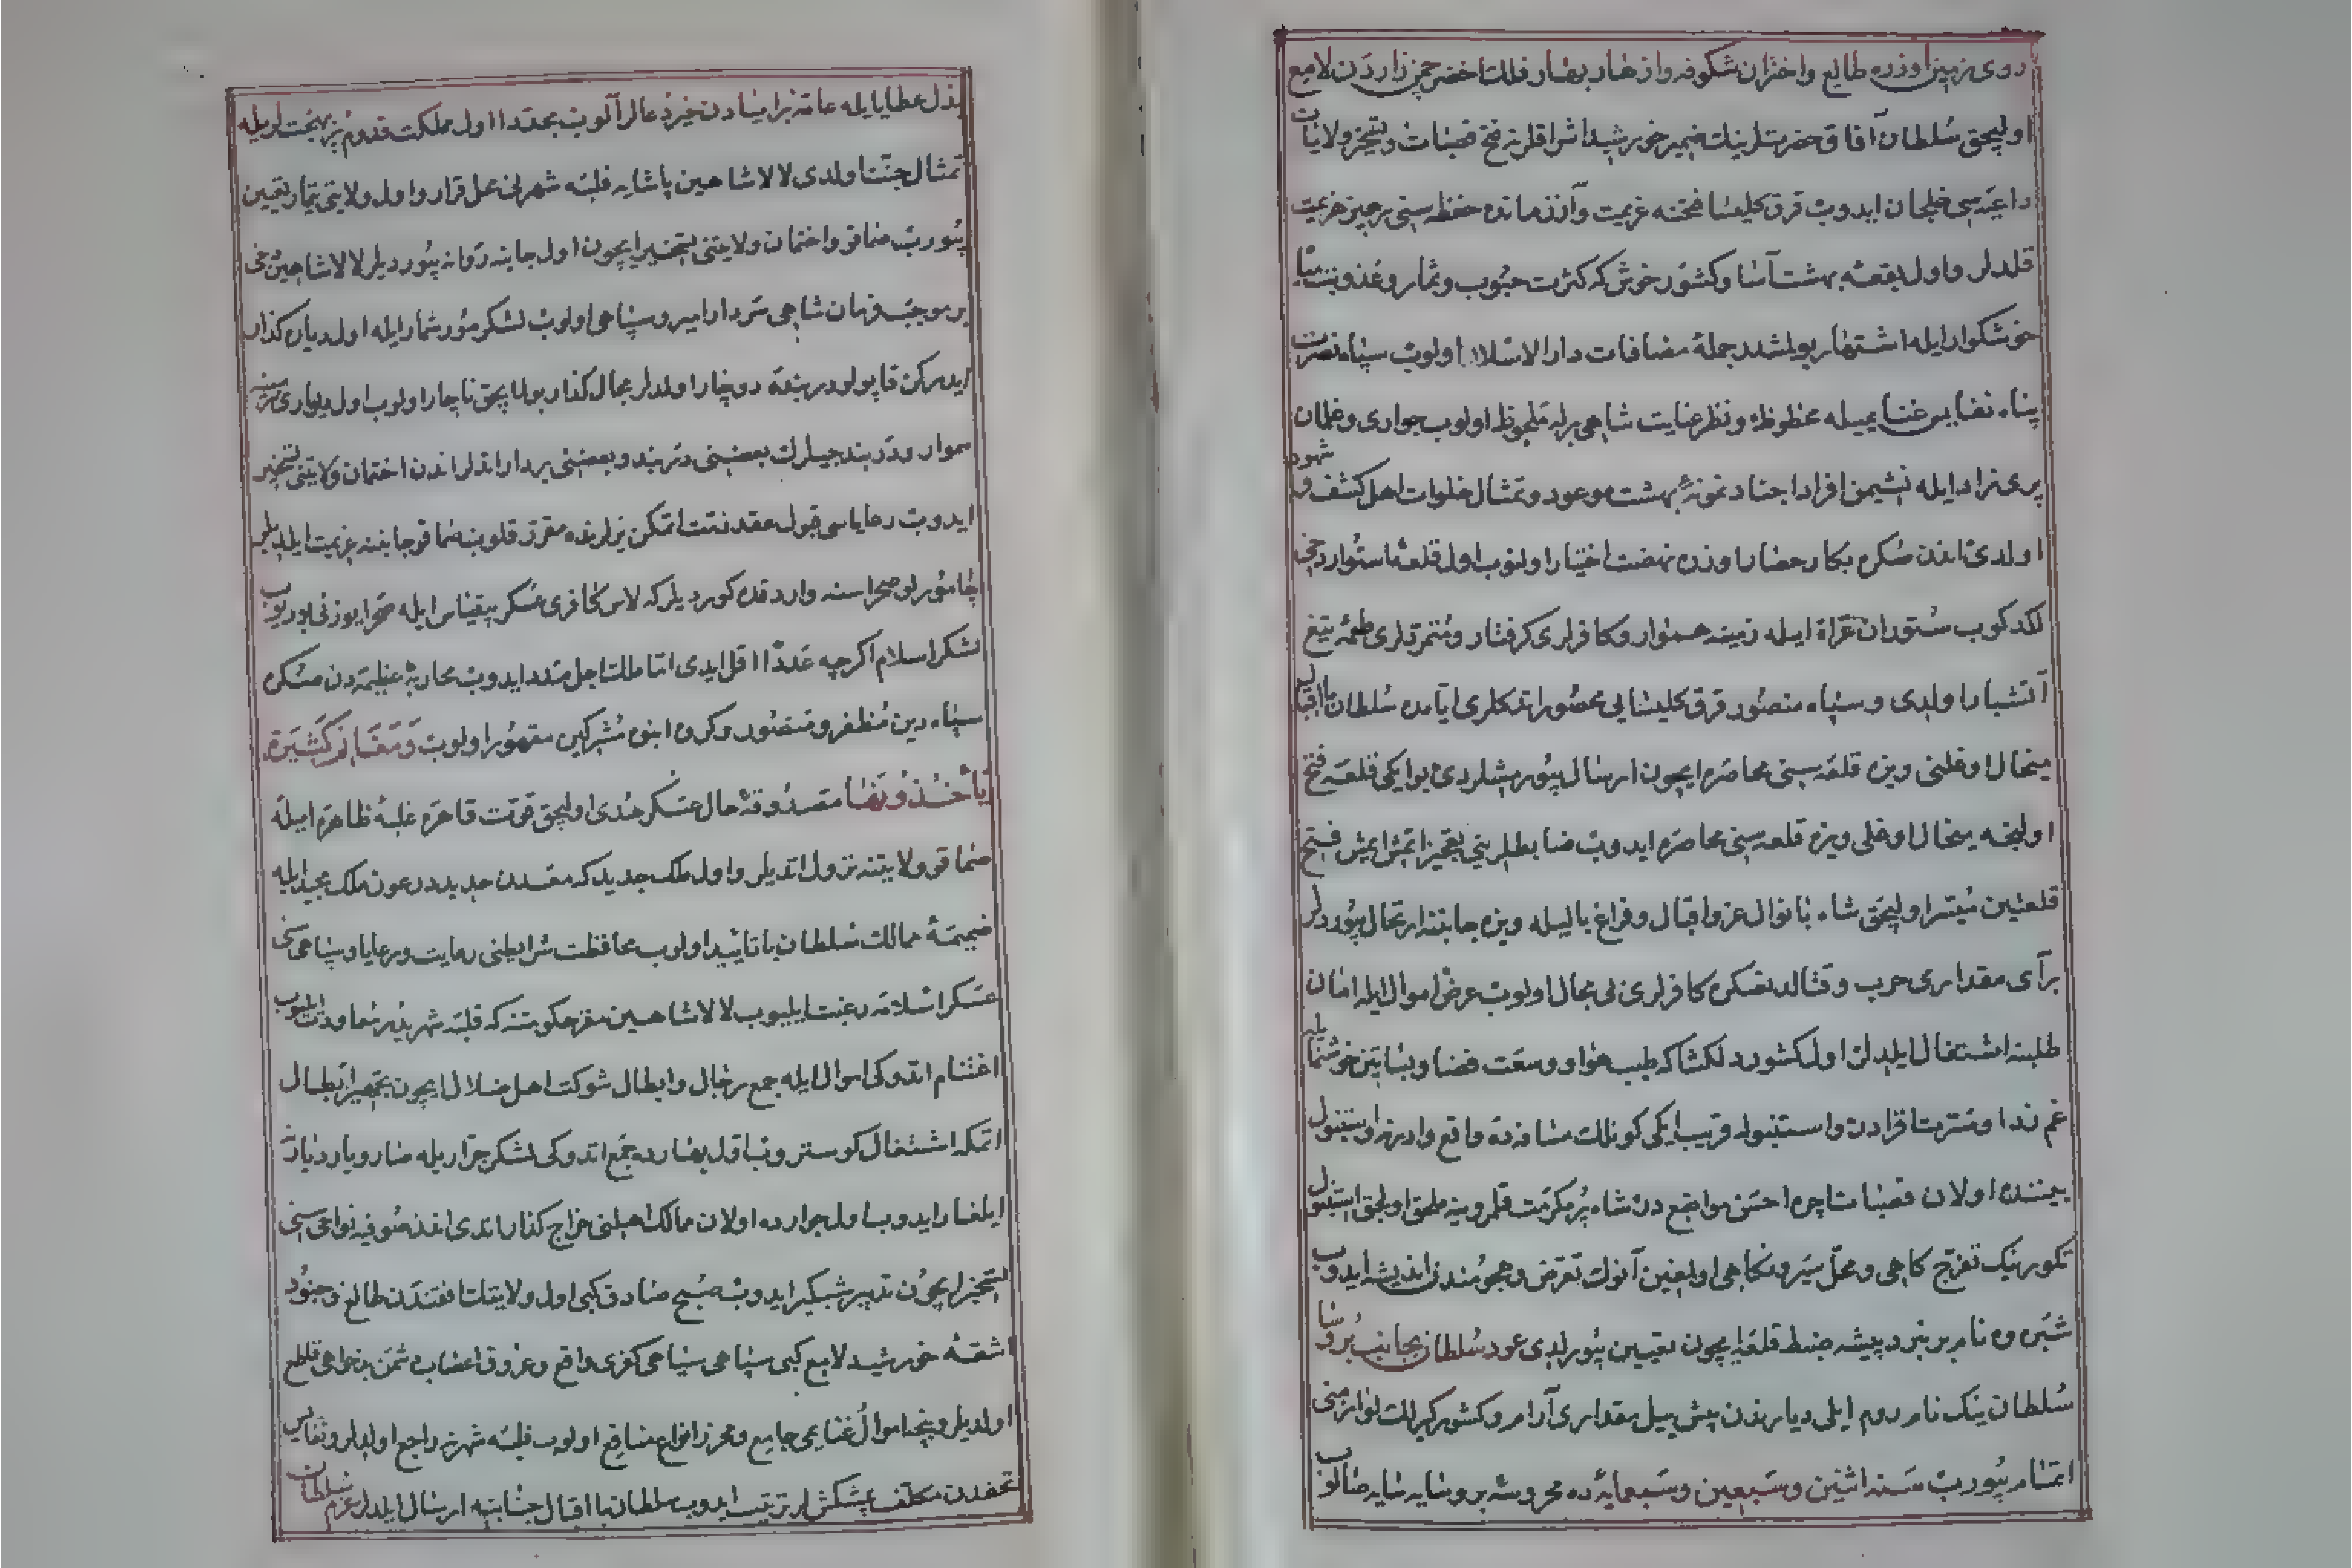 روی زمین اوزره طالع واختران شکوفه وازهار بهار فلک اخضر چمنزاردن لامع
اولیجق سلطان آفاق حضرتلرینك ضمیر خورشید اشراقلرینه فتح قصبات وتسخیر ولایات
داعیه‌سی خلجان ایدوب قرق کلیسا فتحنه عزیمت وآز زمانده حفظه‌سنی هزیمت
قلدلر واول بقعهٔ بهشت آسا وکشور خوش که کثرت حبوب وثمار وعذوبت میاه
خوشکوار ایله اشتهار بولمشدر جملهٔ مضافات دار الاسلام اولوب سپاه نصرت
پناه نفایس غنایمیله محظوظ ونظر عنایت شاهی برله ملحوظ اولوب جواری وغلمان
پری نژاد ایله نشیمن افراد اجناد نمونهٔ بهشت موعود وتمثال خلوات اهل کشف وشهود
اولدی اندن صکره بکار حصار اوزره نهضت اختیار اولنوب اول قلعهٔ استوار دخی
لکدکوب ستوران غزاة ایله زمینه هموار وکافرلری کرفتار ومتمردلری طعمهٔ تیغ
آتشبار اولدی وسپاه منصور قرق کلیسایی محصور اتدکلری ایامده سلطان با اقبال
میخال اوغلنی ویزه قلعه‌سنی محاصره ایچون ارسال بیورمشلردی بو ایکی قلعه فتح
اولنجه میخال اوغلی ویزه قلعه‌سنی محاصره ایدوب ضابطلرینی تعجیز اتمش ایمش فتح
قلعتین میسر اولیجق شاه با نوال عز واقبال وفراغ بال ایله ویزه جانبنه ارتحال بیوردلر
بر آی مقداری حرب وقتالدنصکره کافرلری بی مجال اولوب عرض اموال ایله امان
طلبنه اشتغال ایلدیلر اول کشور دلکشا که طیب هوا ووسعت فضا وبساتین خوشنما یله
غم زدا ومسرت افزادن واستنبوله قریب ایکی کونلك مسافه‌ده واقع وادرنه واستنبول
یمیننده اولان قصباتچره احسن مواضع در شاه پر مکرمت قلمروینه ملحق اولیجق استنبول
تکورینك تفرج کاهی ومحل سیر ونکاهی اولمغین آنوك تعرض وهجومندن اندیشه ایدوب
شبره وه نام بر نبرد پیشه ضبط قلعه ایچون تعیین بیورلدی عود سلطان بجانب بروسا
سلطان ینك نام روم ایلی دیارندن بش ییل مقداری آرام وکشور کیرلك لوازمنی
اتمام بیوروب سنه اثنین وسبعین وسبعمایه ده محروسهٔ بروسایه سایه صالوب
بذل عطایا ایله عامهٔ برایادن خیر دعالر آلوب مجددا اول مملکت قدوم پر بهجتلریله
تمثال جنت اولدی لالا شاهین پاشایه فلبه شهرنی محل قرار واول ولایتی تیمار تعیین
بیوروب صماقو واختمان ولایتنی تسخیر ایچون اول جانبه روانه بیوردیلر لالا شاهین دخی
بر موجب فرمان شاهی سردار امیر وسپاهی اولوب لشکر مور شمار ایله اول دیاره کذار
ایدرکن قاپولو دربنده دوچار اولدلر مجال کذار بولمایجق ناچار اولوب اول دیواری
هموار ودربندجیلرك بعضنی دربند وبعضنی بردار اتدلر اندن اختمان ولایتنی تسخیر
ایدوب رعایاسی قبول عقد ذمت اتمکن یرلرنده مقرر قلوب صماقو جانبنه عزیمت ایلدیلر
چامورلو صحراسنه واردقده کوردیلر که لاس کافری عسکر بیقیاس ایله صحرا یوزنی بوریوب
لشکر اسلام اکرچه عددا اقل ایدی اما ملك اجل مدد ایدوب محاربهٔ عظیمه‌دن صکره
سپاه دین مظفر ومنصور وکروه انبوه مشرکین مقهور اولوب وَمَغَانِمَ كَثِيرَةً
يَأْخُذُونَهَا مصدوقهٔ حال عسکر هدی اولیجق قوت قاهره غلبهٔ ظاهره ایله
صماقو ولایتنه نزول اتدیلر واول ملك جدید که معدن حدیددر عون ملك مجید ایله
ضمیمهٔ ممالك سلطان با تایید اولوب محافظت شرایطنی رعایت ورعایا وسپاهی‌سنی
عسکر اسلامه رعیت ایلیوب لالا شاهین مقر حکومتنه که فلبه شهریدر معاودت ایلیوب
اغتنام اتدوکی اموال ایله جمع رجال وابطال شوکت اهل ضلال ایچون تجهیز ابطال
اتمکه اشتغال کوستروب اول بهارده جمع اتدوکی لشکر جرار یله صارویار دیارنه
ایلغار ایدوب اول جوارده اولان ممالك اهلنی خراج کذار اتدی اندن صوفیه نواحی‌سنی
تسخیر ایچون تدبیر شبکیر ایدوب صبح صادق کبی اول ولایتك افقندن طالع وجنود
اشعهٔ خورشید لامع کبی سپاهی سیاهی کفری دافع وعروق اعصاب دشمن بدخواهی قاطع
اولدیلر ونیجه اموال غنایمی جامع ومحرز انواع منافع اولوب فلبه شهرنه راجع اولدیلر ونفایس
تحفدن مکلف پیشکشلر ترتیب ایدوب سلطان با اقبال جنابنه ارسال ایلدیلر عزم سلطان